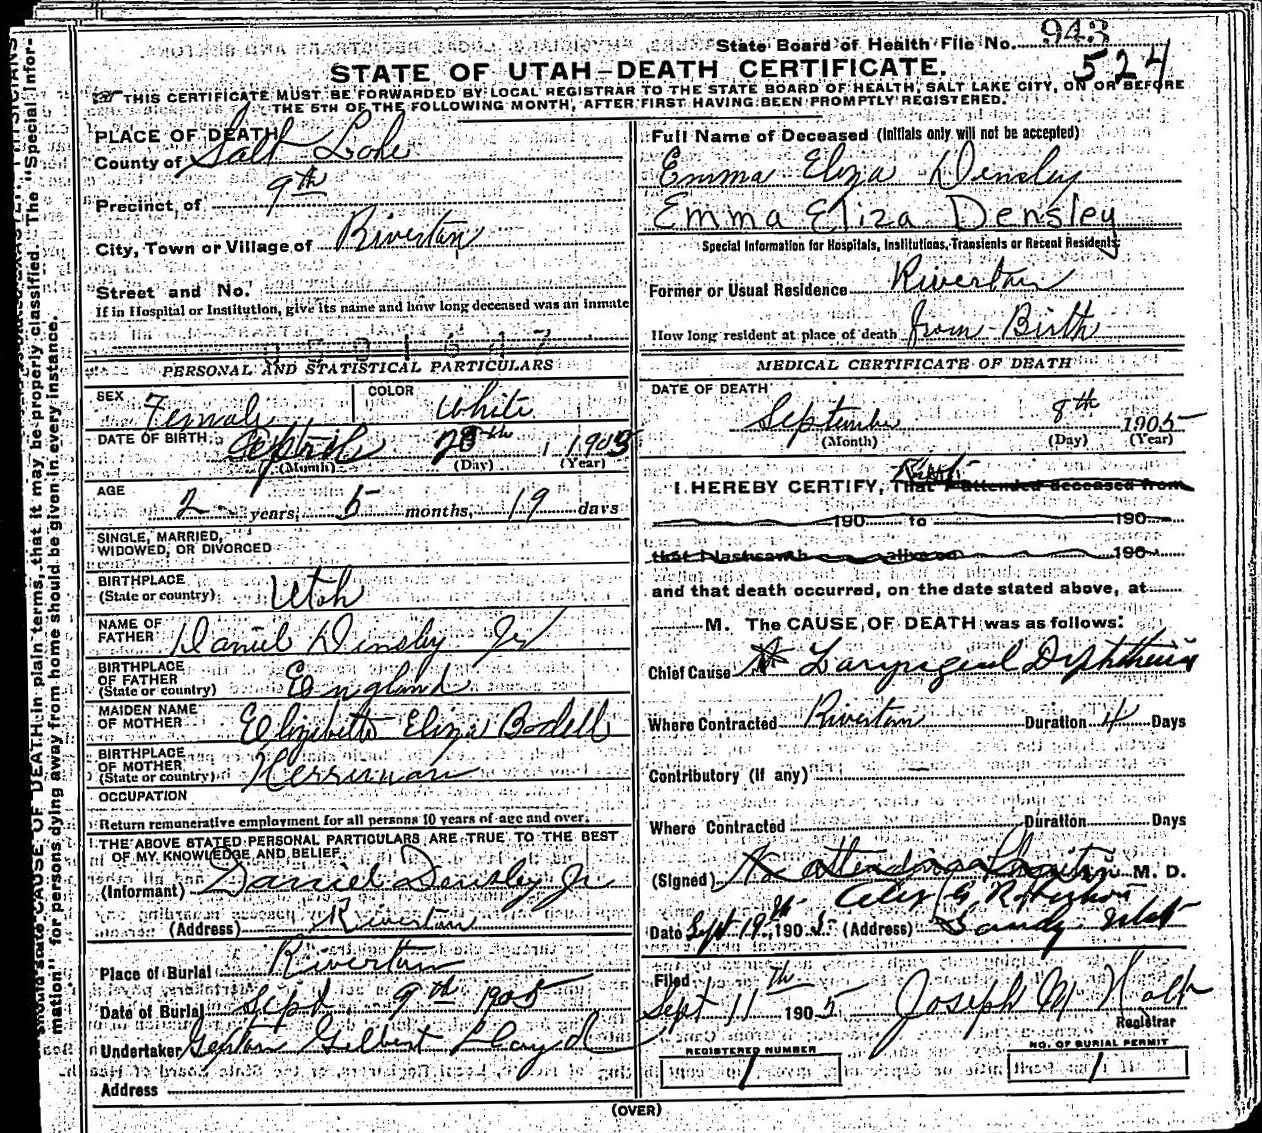 State Board of Health File No. 943
524
STATE OF UTAH—DEATH CERTIFICATE.
THIS CERTIFICATE MUST BE FORWARDED BY LOCAL REGISTRAR TO THE STATE BOARD OF HEALTH, SALT LAKE CITY, ON OR BEFORE
THE 5TH OF THE FOLLOWING MONTH, AFTER FIRST HAVING BEEN PROMPTLY REGISTERED.
PLACE OF DEATH
County of Salt Lake
Precinct of 9th
City, Town or Village of Riverton
Street and No.
If in Hospital or Institution, give its name and how long deceased was an inmate
PERSONAL AND STATISTICAL PARTICULARS
SEX Female
COLOR White
DATE OF BIRTH 1903
(Month) (Day) (Year)
AGE
2 years, 5 months, 19 days
SINGLE, MARRIED,
WIDOWED, OR DIVORCED
BIRTHPLACE
(State or country) Utah
NAME OF
FATHER Daniel Densley Jr
BIRTHPLACE
OF FATHER
(State or country) England
MAIDEN NAME
OF MOTHER Elizibetto Eliza Bodell
BIRTHPLACE
OF MOTHER
(State or country) Herriman
OCCUPATION
Return remunerative employment for all persons 10 years of age and over.
THE ABOVE STATED PERSONAL PARTICULARS ARE TRUE TO THE BEST
OF MY KNOWLEDGE AND BELIEF.
(Informant) Daniel Densley Jr
(Address) Riverton
Place of Burial Riverton
Date of Burial Sept 9th 1905
Undertaker Gilbert Lloyd
Address
Full Name of Deceased (Initials only will not be accepted)
Emma Eliza Densley
Emma Eliza Densley
Special Information for Hospitals, Institutions, Transients or Recent Residents:
Former or Usual Residence Riverton
How long resident at place of death from Birth
MEDICAL CERTIFICATE OF DEATH
DATE OF DEATH
September 8th 1905
(Month) (Day) (Year)
I HEREBY CERTIFY, That I attended deceased from
190 to 190
that I last saw h alive on 190
and that death occurred, on the date stated above, at
M. The CAUSE OF DEATH was as follows:
Chief Cause Laryngeal Diphtheria
Where Contracted Riverton Duration 4 Days
Contributory (if any) —
Where Contracted Duration Days
(Signed) No attending M. D.
Date Sept 19th, 1905 (Address) Sandy Utah
Filed
Sept 11th 1905 Joseph M Holt
Registrar
REGISTERED NUMBER
1
NO. OF BURIAL PERMIT
1
(OVER)
should state CAUSE OF DEATH in plain terms, that it may be properly classified. The "Special Infor-
mation" for persons dying away from home should be given in every instance.